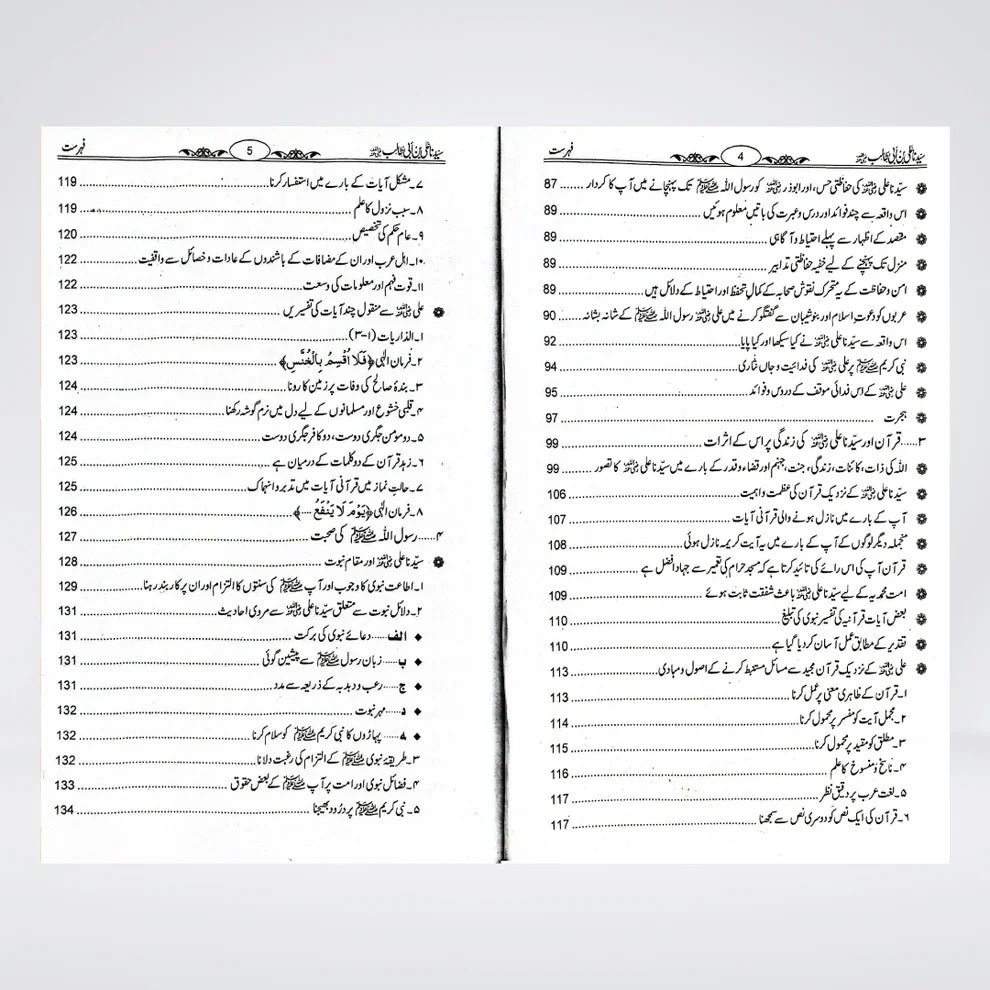 سیدنا علی بن ابی طالب رضی اللہ عنہ 4 فہرست
سیّدنا علی رضی اللہ عنہ کی حفاظتی حس، اور ابوذر رضی اللہ عنہ کو رسول اللہ ﷺ تک پہنچانے میں آپ کا کردار ...... 87
اس واقعہ سے چند فوائد اور درس و عبرت کی باتیں معلوم ہوئیں ...... 89
مقصد کے اظہار سے پہلے احتیاط و آگاہی ...... 89
منزل تک پہنچنے کے لیے خفیہ حفاظتی تدابیر ...... 89
امن و حفاظت کے یہ متحرک نقوش صحابہ کے کمالِ تحفظ اور احتیاط کے دلائل ہیں ...... 89
عربوں کو دعوتِ اسلام اور بنوشیبان سے گفتگو کرنے میں علی رضی اللہ عنہ رسول اللہ ﷺ کے شانہ بشانہ ...... 90
اس واقعہ سے سیّدنا علی رضی اللہ عنہ نے کیا سیکھا اور کیا پایا ...... 92
نبی کریم ﷺ پر علی رضی اللہ عنہ کی فدائیت و جاں نثاری ...... 94
علی رضی اللہ عنہ کے اس فدائی موقف کے دروس و فوائد ...... 95
ہجرت ...... 97
۳......قرآن اور سیّدنا علی رضی اللہ عنہ کی زندگی پر اس کے اثرات ...... 99
اللہ کی ذات، کائنات، زندگی، جنت، جہنم اور قضاء و قدر کے بارے میں سیّدنا علی رضی اللہ عنہ کا تصور ...... 99
سیّدنا علی رضی اللہ عنہ کے نزدیک قرآن کی عظمت و اہمیت ...... 106
آپ کے بارے میں نازل ہونے والی قرآنی آیات ...... 107
منجملہ دیگر لوگوں کے آپ کے بارے میں یہ آیت کریمہ نازل ہوئی ...... 108
قرآن آپ کی اس رائے کی تائید کرتا ہے کہ مسجد حرام کی تعمیر سے جہاد افضل ہے ...... 109
امت محمدیہ کے لیے سیّدنا علی رضی اللہ عنہ باعث شفقت ثابت ہوئے ...... 109
بعض آیات قرآنیہ کی تفسیر نبوی کی تبلیغ ...... 110
تقدیر کے مطابق عمل آسان کردیا گیا ہے ...... 110
علی رضی اللہ عنہ کے نزدیک قرآن مجید سے مسائل مستنبط کرنے کے اصول و مبادی ...... 113
۱۔ قرآن کے ظاہری معنی پر عمل کرنا ...... 113
۲۔ مجمل آیت کو مفسر پر محمول کرنا ...... 114
۳۔ مطلق کو مقید پر محمول کرنا ...... 115
۴۔ ناسخ و منسوخ کا علم ...... 116
۵۔ لغت عرب پر دقیق نظر ...... 117
۶۔ قرآن کی ایک نص کو دوسری نص سے سمجھنا ...... 117
سیدنا علی بن ابی طالب رضی اللہ عنہ 5 فہرست
۷۔ مشکل آیات کے بارے میں استفسار کرنا ...... 119
۸۔ سبب نزول کا علم ...... 119
۹۔ عام حکم کی تخصیص ...... 120
۱۰۔ اہل عرب اور ان کے مضافات کے باشندوں کے عادات و خصائل سے واقفیت ...... 122
۱۱۔ قوت فہم اور معلومات کی وسعت ...... 122
علی رضی اللہ عنہ سے منقول چند آیات کی تفسیریں ...... 123
۱۔ الذاریات (۱-۳) ...... 123
۲۔ فرمان الٰہی ﴿فَلَا أُقْسِمُ بِالْخُنَّسِ﴾ ...... 123
۳۔ بندۂ صالح کی وفات پر زمین کا رونا ...... 124
۴۔ قلبی خشوع اور مسلمانوں کے لیے دل میں نرم گوشہ رکھنا ...... 124
۵۔ دو مومن جگری دوست، دو کافر جگری دوست ...... 124
۶۔ زہد قرآن کے دو کلمات کے درمیان ہے ...... 125
۷۔ حالتِ نماز میں قرآنی آیات میں تدبر و انہماک ...... 125
۸۔ فرمان الٰہی ﴿يَوْمَ لَا يَنْفَعُ ...﴾ ...... 126
۴......رسول اللہ ﷺ کی صحبت ...... 127
سیّدنا علی رضی اللہ عنہ اور مقام نبوت ...... 128
۱۔ اطاعت نبوی کا وجوب اور آپ ﷺ کی سنتوں کا التزام اور ان پر کاربند رہنا ...... 129
۲۔ دلائل نبوت سے متعلق سیّدنا علی رضی اللہ عنہ سے مروی احادیث ...... 131
الف......دعائے نبوی کی برکت ...... 131
ب......زبان رسول ﷺ سے پیشین گوئی ...... 131
ج......رعب و دبدبہ کے ذریعہ سے مدد ...... 131
د......مہر نبوت ...... 132
ہ......پہاڑوں کا نبی کریم ﷺ کو سلام کرنا ...... 132
۳۔ طریقۂ نبوی ﷺ کے التزام کی رغبت دلانا ...... 132
۴۔ فضائل نبوی اور امت پر آپ ﷺ کے بعض حقوق ...... 133
۵۔ نبی کریم ﷺ پر درُود بھیجنا ...... 134